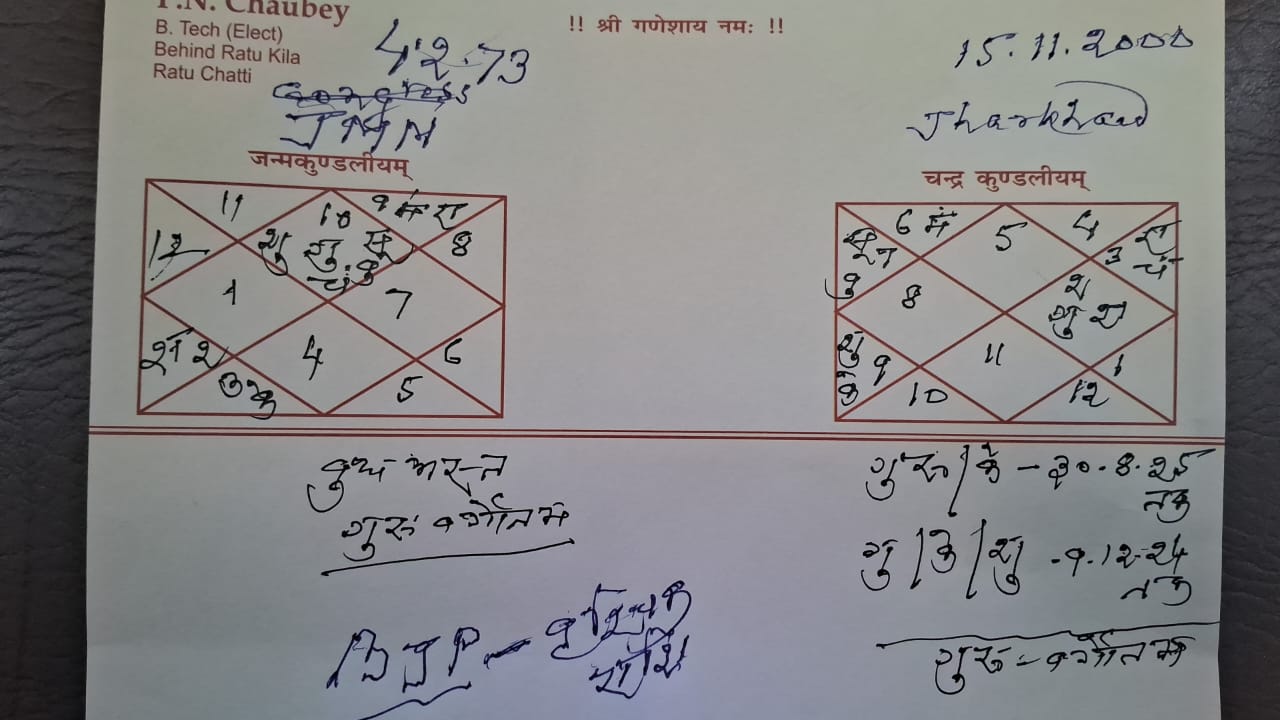 T.N. Chaubey
B. Tech (Elect)
Behind Ratu Kila
Ratu Chatti
!! श्री गणेशाय नमः !!
4.2.73
Congress
JMM
15.11.2000
Jharkhand
जन्मकुण्डलीयम्
11
10
9 मं रा
12
शु गु सू
चं. बु
8
1
7
श २
4
6
3 के
5
चन्द्र कुण्डलीयम्
6 मं
5
4
सू 7
बु
3 रा
चं
8
२
गु श
शु
के 9
11
1
10
12
बुध अस्त
गुरु वर्गोत्तम
BJP - वृश्चिक
राशि
गुरु/के - 30.8.25
तक
गु/के/शु - 9.12.24
तक
गुरु - वर्गोत्तम